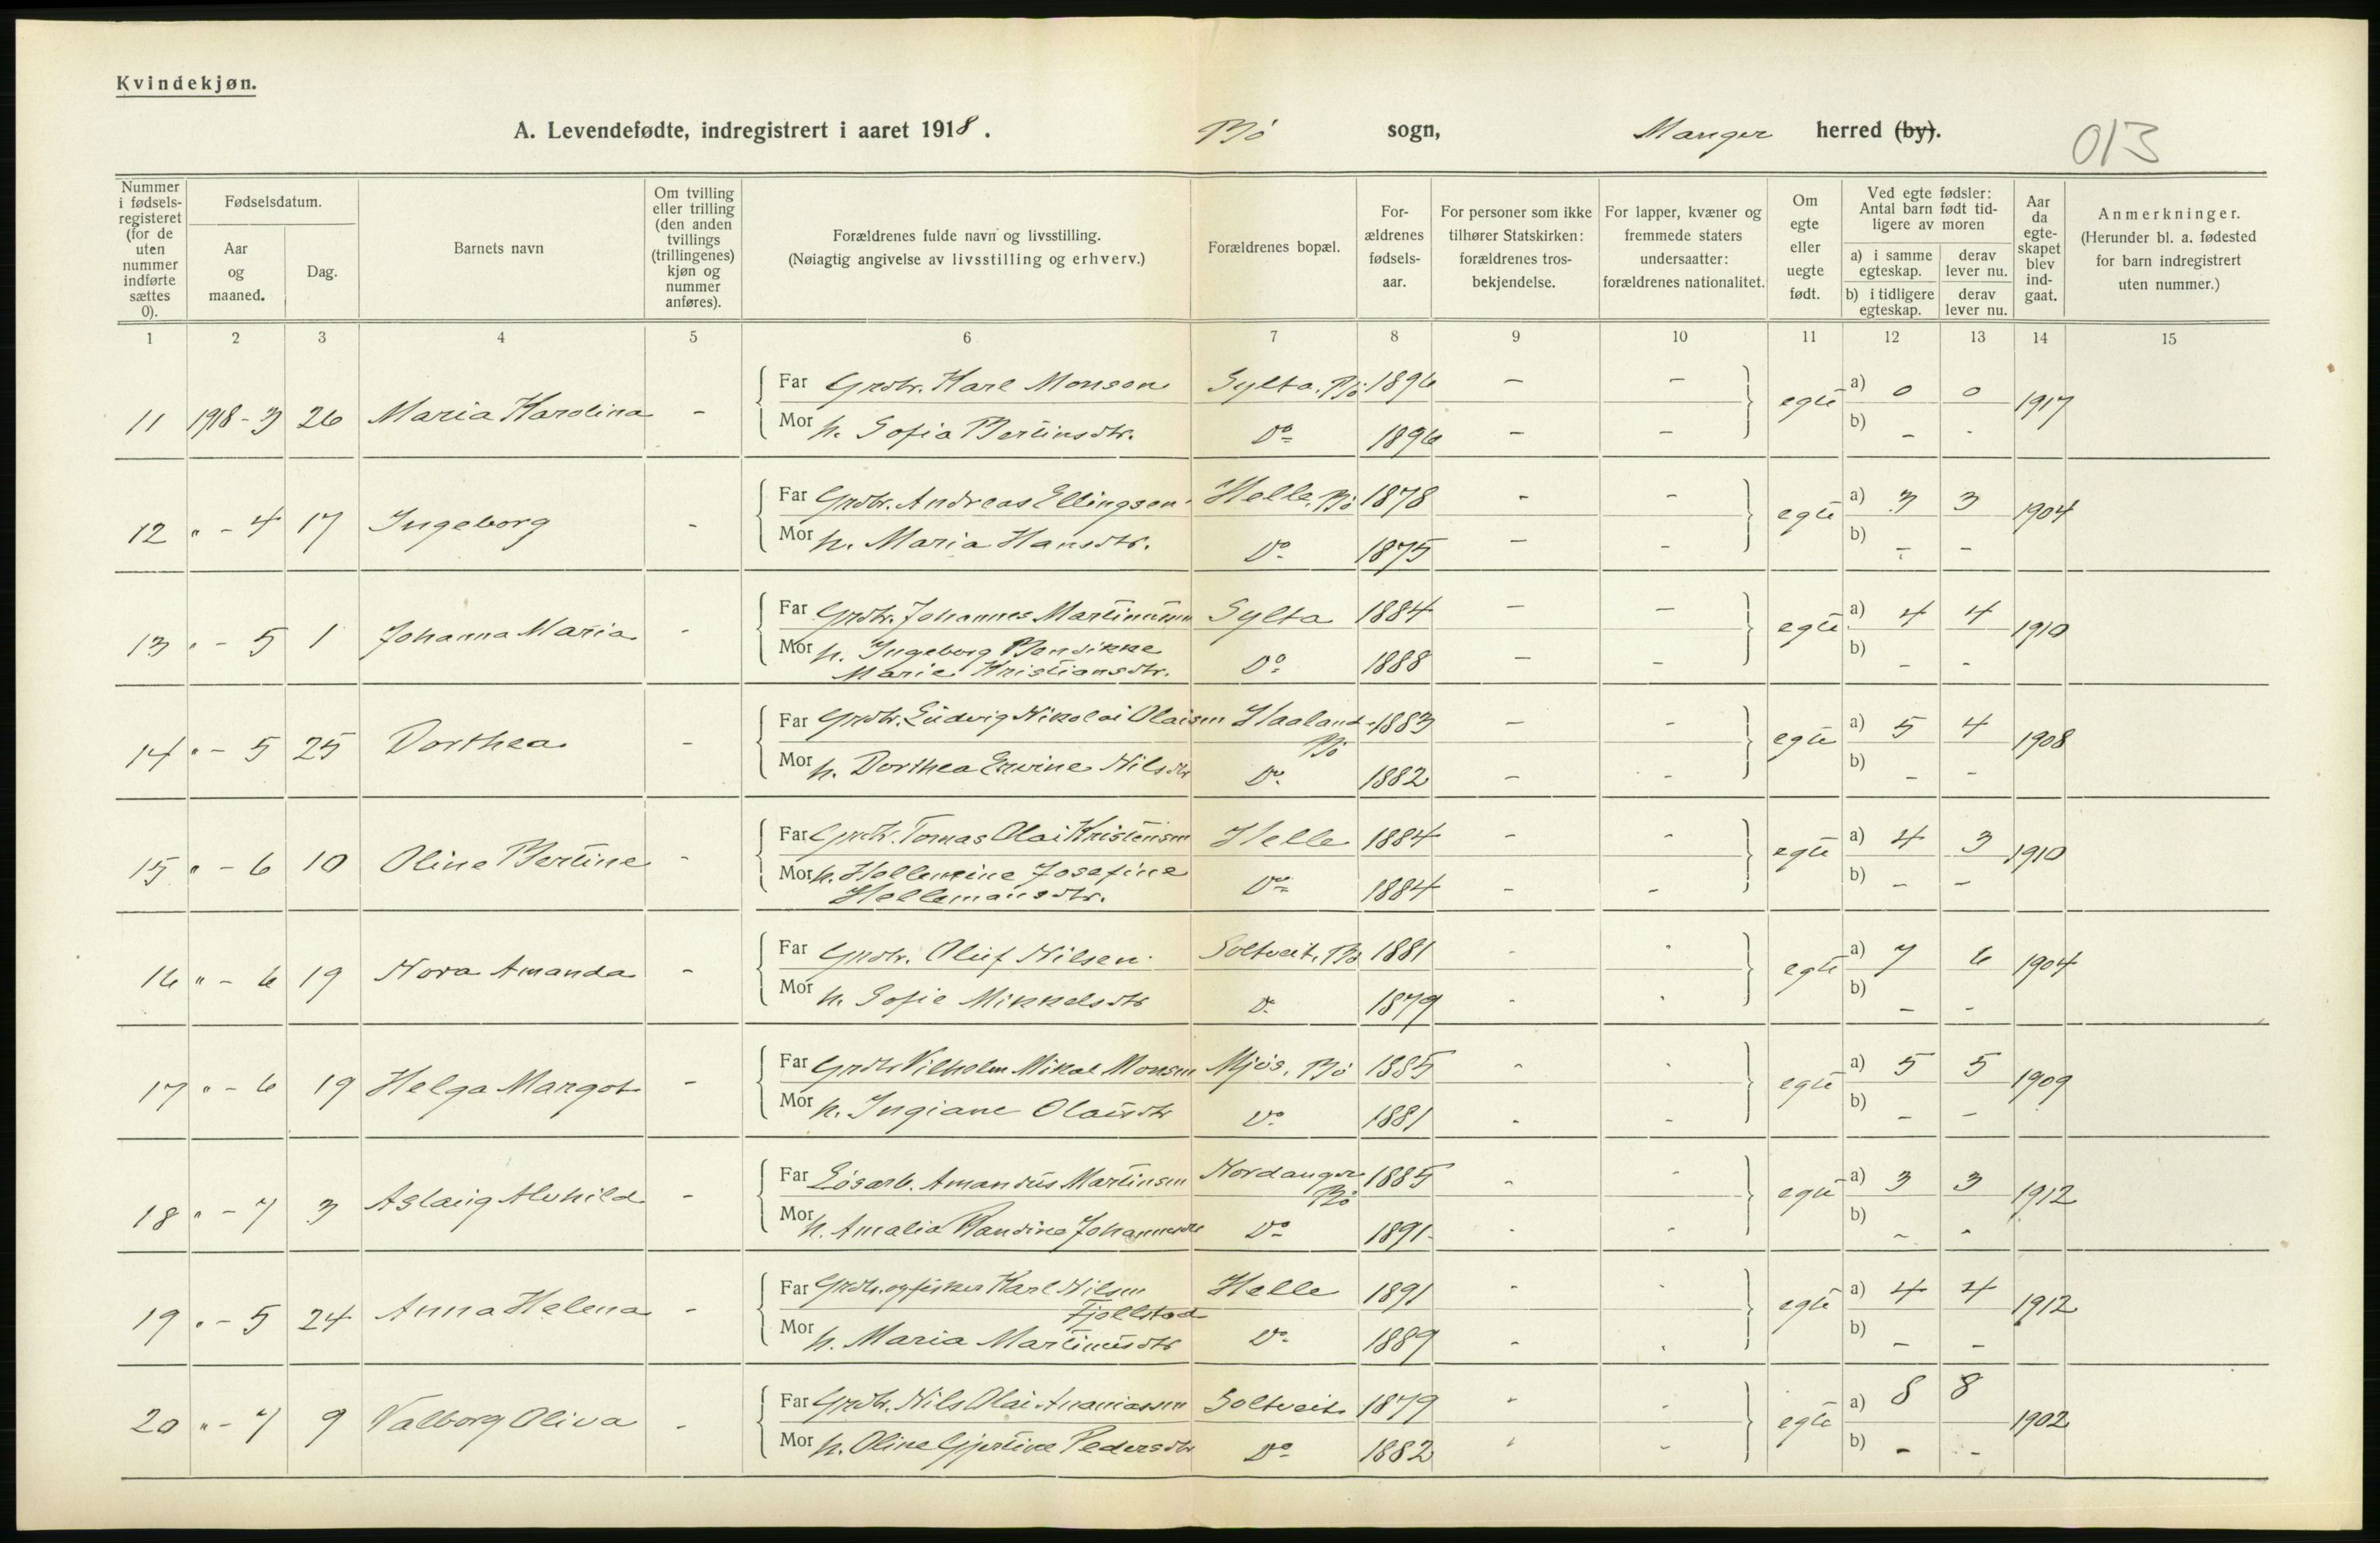 Kvindekjøn.
A. Levendefødte, indregistrert i aaret 1918. Bö sogn, Manger herred (by). 013
Nummer i fødselsregisteret (for de uten nummer indførte sættes 0).
Fødselsdatum.
Aar og maaned.
Dag.
Barnets navn
Om tvilling eller trilling (den anden tvillings (trillingenes) kjøn og nummer anføres).
Forældrenes fulde navn og livsstilling.
(Nøiagtig angivelse av livsstilling og erhverv.)
Forældrenes bopæl.
Forældrenes fødselsaar.
For personer som ikke tilhører Statskirken: forældrenes trosbekjendelse.
For lapper, kvæner og fremmede staters undersaatter: forældrenes nationalitet.
Om egte eller uegte født.
Ved egte fødsler: Antal barn født tidligere av moren
a) i samme egteskap. derav lever nu.
b) i tidligere egteskap. derav lever nu.
Aar da egteskapet blev indgaat.
Anmerkninger.
(Herunder bl. a. fødested for barn indregistrert uten nummer.)
1 2 3 4 5 6 7 8 9 10 11 12 13 14 15
Far Grdbr. Karl Monsen Sylta, Bö 1896 - -
11 1918-3 26 Maria Karolina - egte a) 0 0 1917
Mor h. Sofia Bertinsdtr. Do 1896 - - b) - -
Far Grdbr. Andreas Ellingsen Helle, Bö 1878 - -
12 " - 4 17 Ingeborg - egte a) 3 3 1904
Mor h. Maria Hansdtr. Do 1875 - - b) - -
Far Grdbr. Johannes Martinusen Sylta 1884 - -
13 " - 5 1 Johanna Maria - egte a) 4 4 1910
Mor h. Ingeborg Bendikke Marie Kristiansdtr. Do 1888 - - b) - -
Far Grdbr. Ludvig Nikolai Olaisen Haaland, Bö 1883 - -
14 " - 5 25 Dorthea - egte a) 5 4 1908
Mor h. Dorthea Nilsdtr Do 1882 - - b) - -
Far Grdbr. Tomas Olai Kristensen Helle 1884 - -
15 " - 6 10 Oline Bertine - egte a) 4 3 1910
Mor h. Hellemine Josefine Hellemansdtr. Do 1884 - - b) - -
Far Grdbr. Oluf Nilsen Soltveit, Bö 1881 - -
16 " - 6 19 Nora Amanda - egte a) 7 6 1904
Mor h. Sofie Mikkelsdtr Do 1879 - - b) - -
Far Grdbr Vilhelm Mikal Monsen Mjös, Bö 1885 - -
17 " - 6 19 Helga Margot - egte a) 5 5 1909
Mor h. Ingiane Olaisdtr Do 1881 - - b) - -
Far Lösarb. Amandus Martinsen Nordanger Bö 1885 - -
18 " - 7 3 Aslaug Alvhild - egte a) 3 3 1912
Mor h. Amalia Randina Johannesdtr Do 1891 - - b) - -
Far Grdbr. og fisker Karl Nilsen Fjellstad Helle 1891 - -
19 " - 5 24 Anna Helena - egte a) 4 4 1912
Mor h. Maria Martinusdtr Do 1889 - - b) - -
Far Grdbr. Nils Olai Ananiassen Soltveit 1879 - -
20 " - 7 9 Valborg Oliva - egte a) 8 8 1902
Mor h. Oline Gjertine Pedersdtr Do 1882 - - b) - -